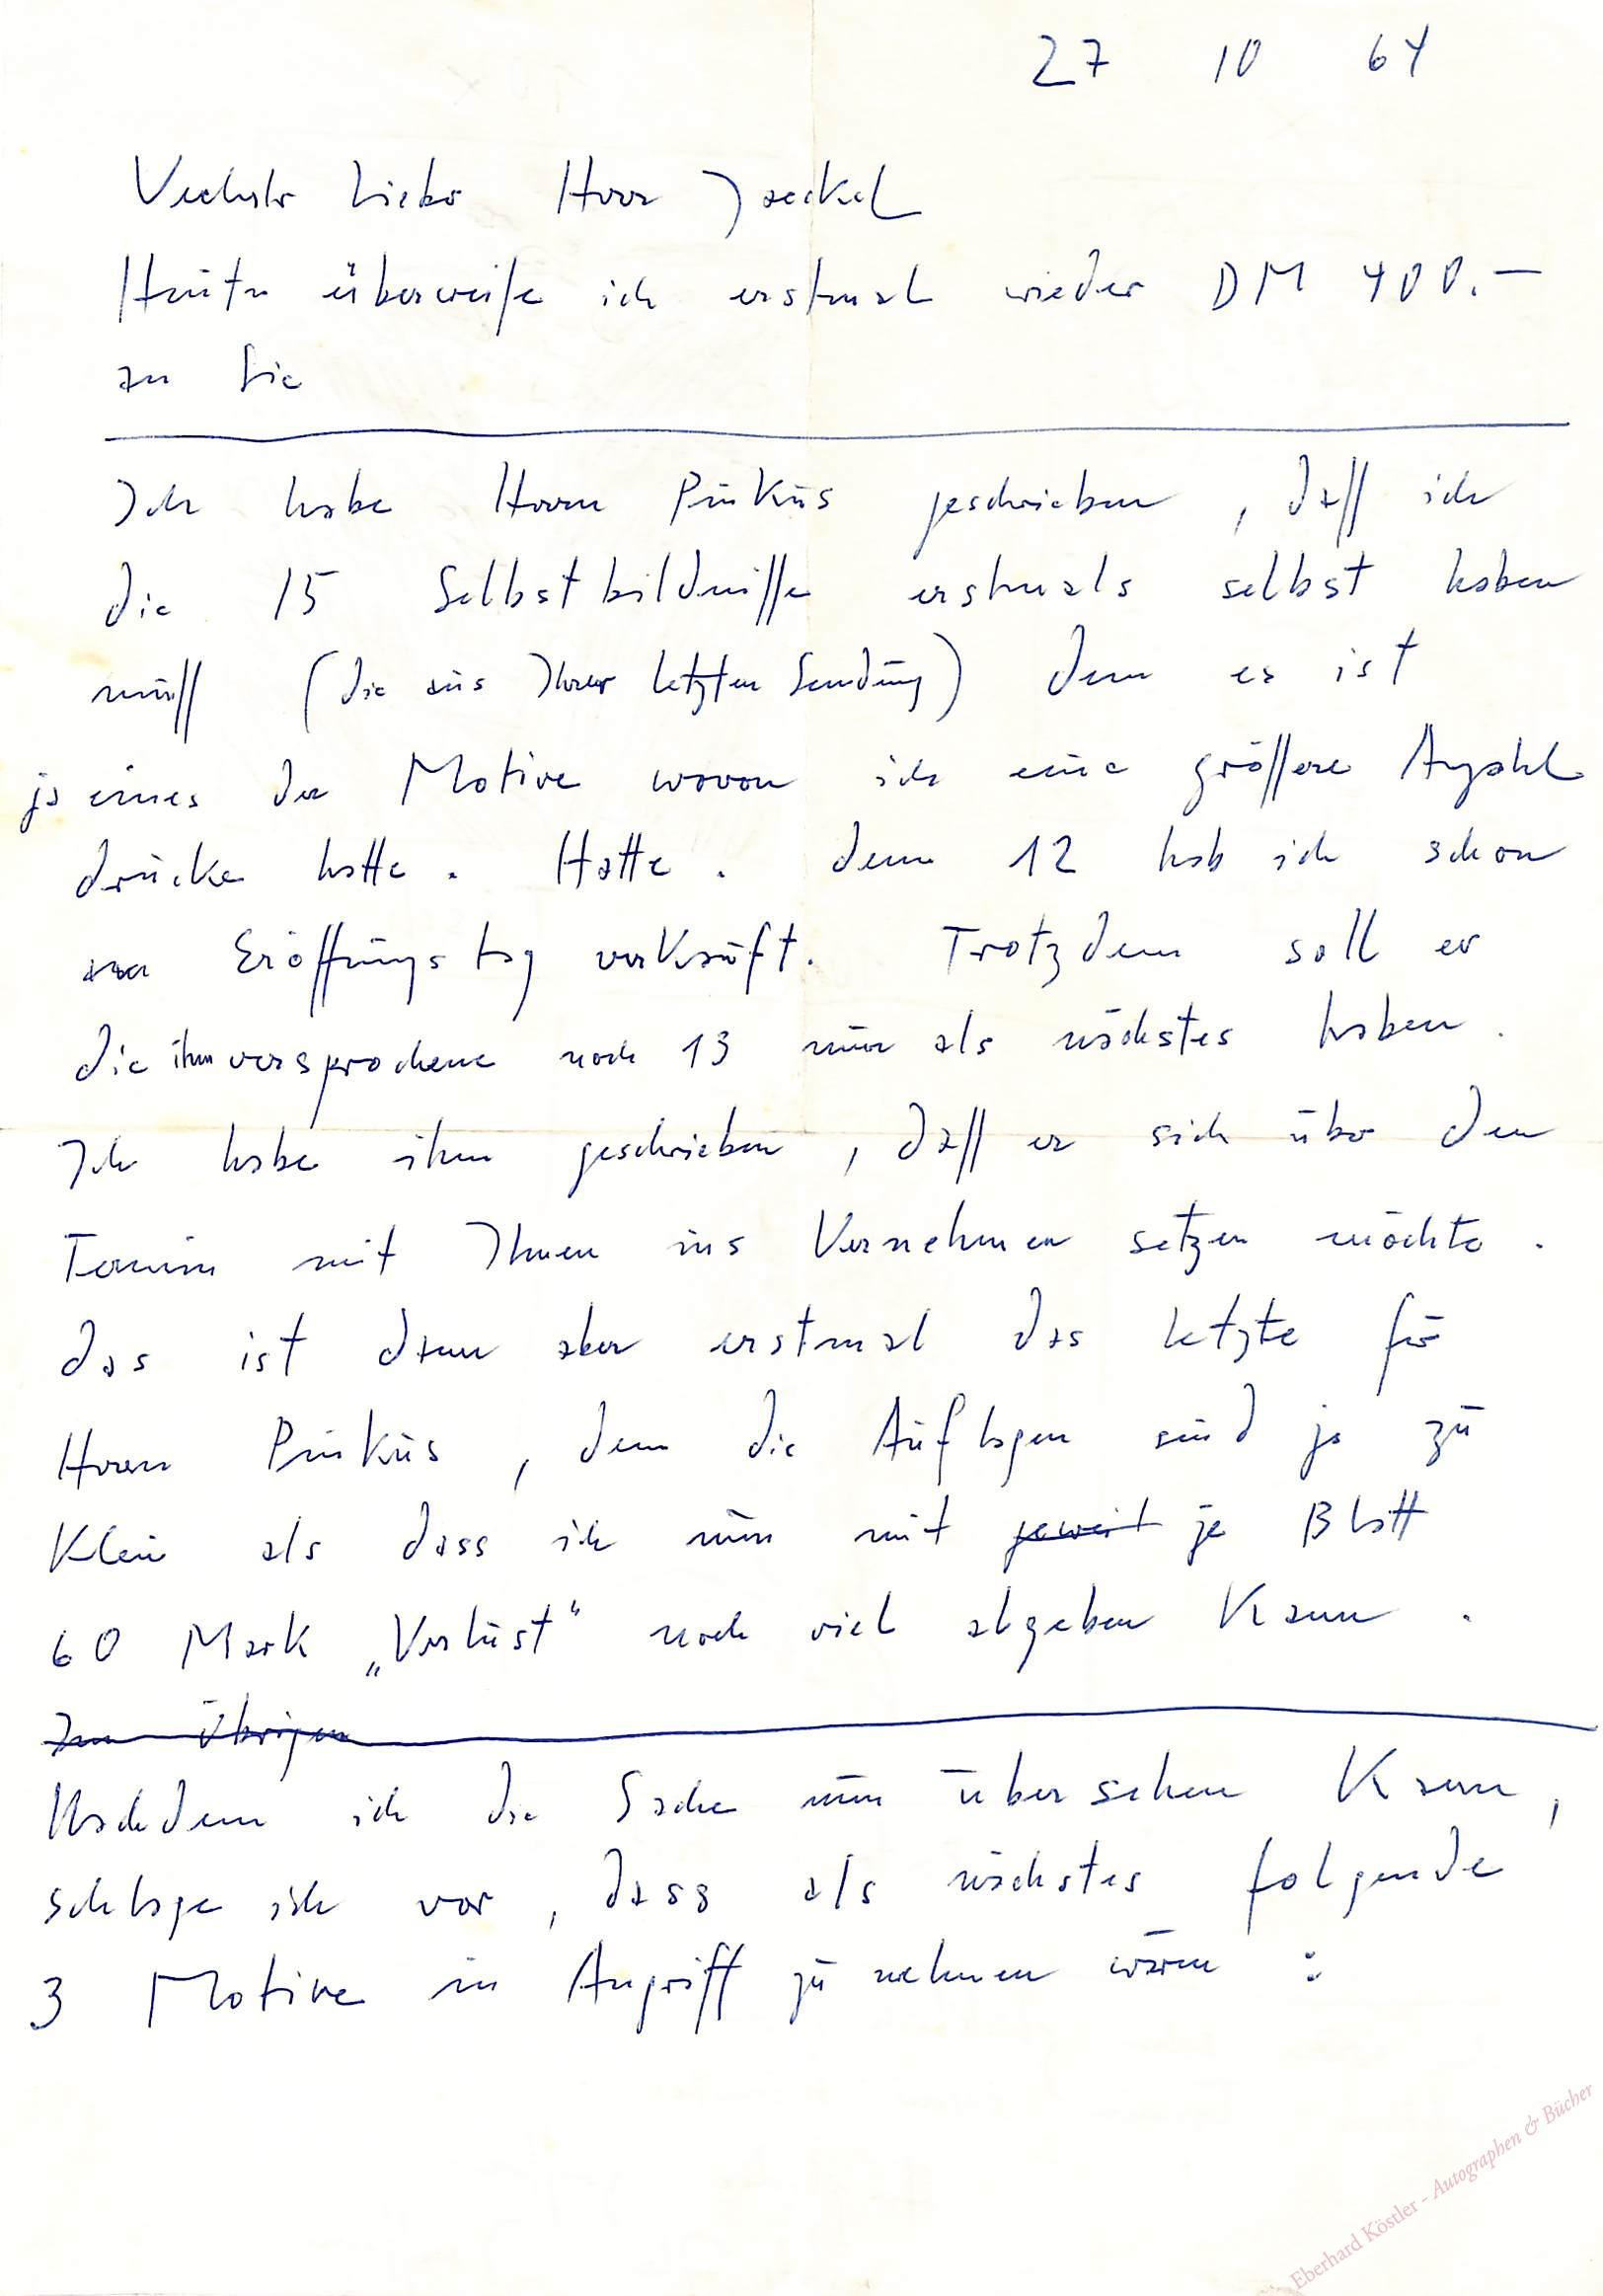 27 10 64
Verehrter Lieber Herr Jaeckel
Heute überweiſe ich erstmal wieder DM 400.—
an Sie
Ich habe Herrn Pinkus geschrieben, daſſ ich
die 15 Selbstbildniſſe erstmals selbst haben
muſſ (die aus Ihrer letzten Sendung) denn es ist
ja eines der Motive wovon ich eine gröſſere Anzahl
drucke hatte. Hatte. denn 12 hab ich schon
am Eröffnungstag verkauft. Trotzdem soll er
die ihm versprochene noch 13 nun als nächstes haben.
Ich habe ihm geschrieben, daſſ er sich über den
Termin mit Ihnen ins Vernehmen setzen möchte.
das ist dann aber erstmal das letzte für
Herrn Pinkus, denn die Auflagen sind ja zu
Klein als dass ich nun mit jeweil je Blatt
60 Mark „Verlust“ noch viel abgeben Kann.
Im übrigen
Nachdem ich die Sache nun übersehen Kann,
schlage ich vor, dass als nächstes folgende
3 Motive in Angriff zu nehmen wären:
Eberhard Köstler - Autographen & Bücher